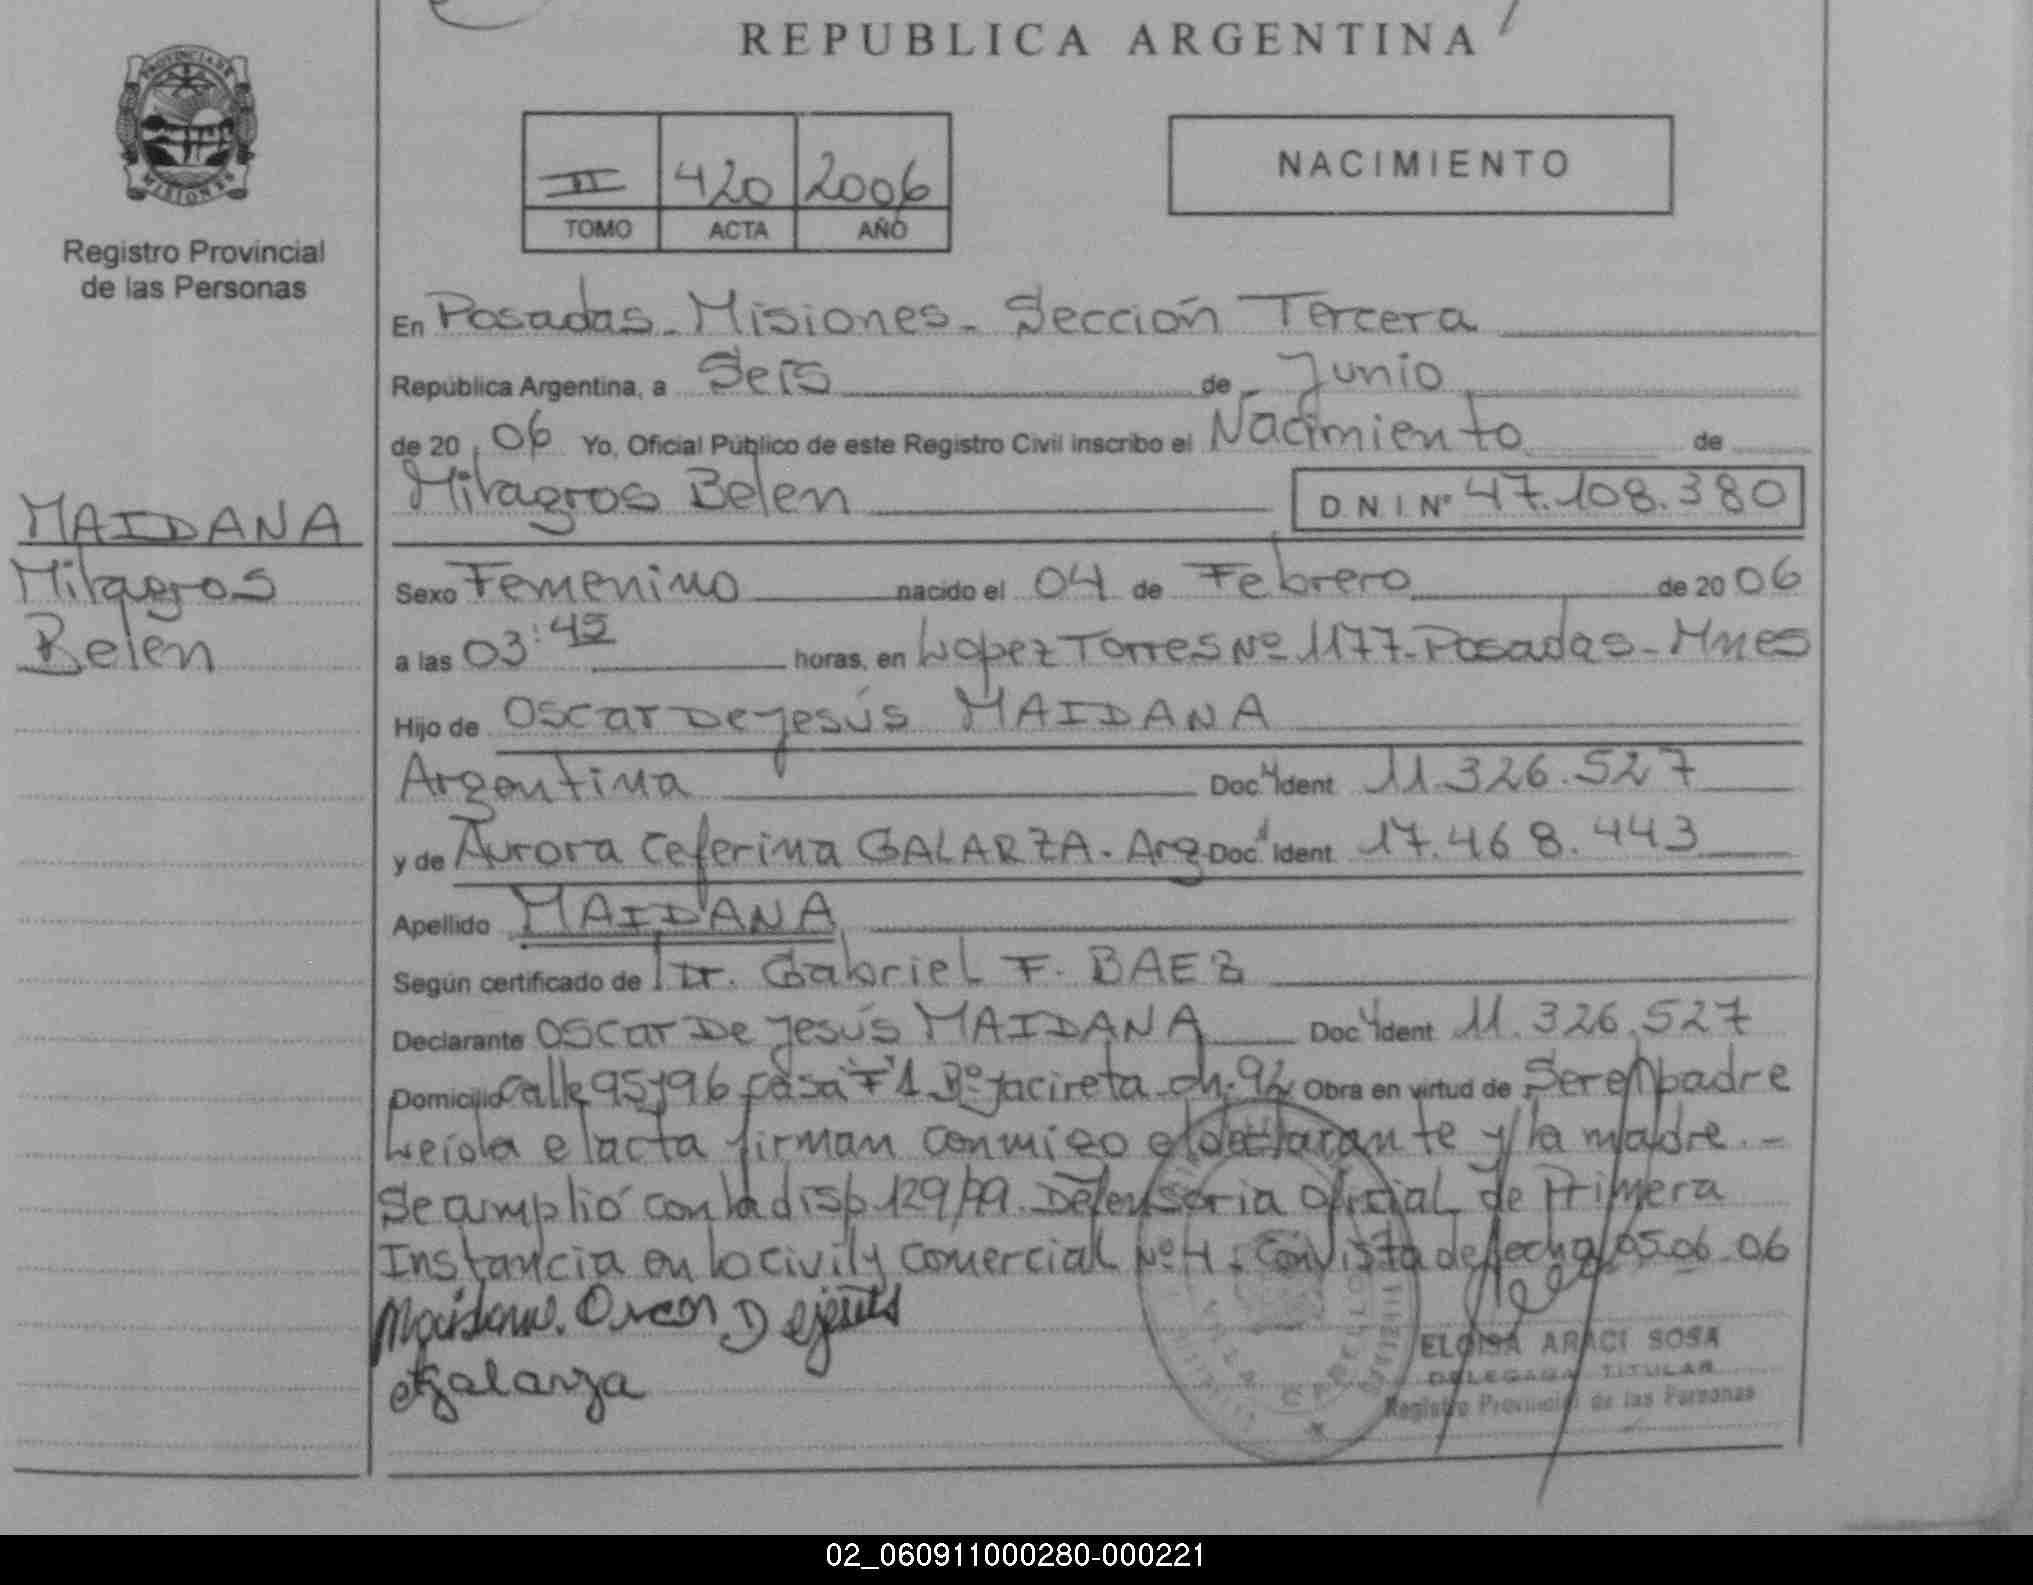 REPUBLICA ARGENTINA
PROVINCIA DE
MISIONES
Registro Provincial
de las Personas
II 420 2006
TOMO ACTA AÑO
NACIMIENTO
En Posadas - Misiones - Sección Tercera
República Argentina, a Seis de Junio
de 20 06 Yo, Oficial Público de este Registro Civil inscribo el Nacimiento de
Milagros Belen D.N.I. Nº 47.108.380
MAIDANA
Milagros
Belen
Sexo Femenino nacido el 04 de Febrero de 20 06
a las 03:45 horas, en Lopez Torres Nº 1177 - Posadas - Mnes
Hijo de Oscar De Jesús MAIDANA
Argentina Doc. Ident. 11.326.527
y de Aurora Ceferina GALARZA. Arg. Doc. Ident. 17.468.443
Apellido MAIDANA
Según certificado de Dr. Gabriel F. BAEZ
Declarante Oscar De Jesús MAIDANA Doc. Ident 11.326.527
Domicilio Calle 95 y 96 casa F 1 Bº Yacireta ch. Obra en virtud de Ser el padre
Leída el acta firman conmigo el declarante y la madre. -
Se amplió con la disp. 129/99. Defensoria Oficial de Primera
Instancia en lo Civil y Comercial Nº 4. Con vista de fecha 05.06.06
Maidana. Oscar D ejesús
Galarza
ELOISA ARACI SOSA
DELEGADA TITULAR
Registro Provincial de las Personas
02_060911000280-000221